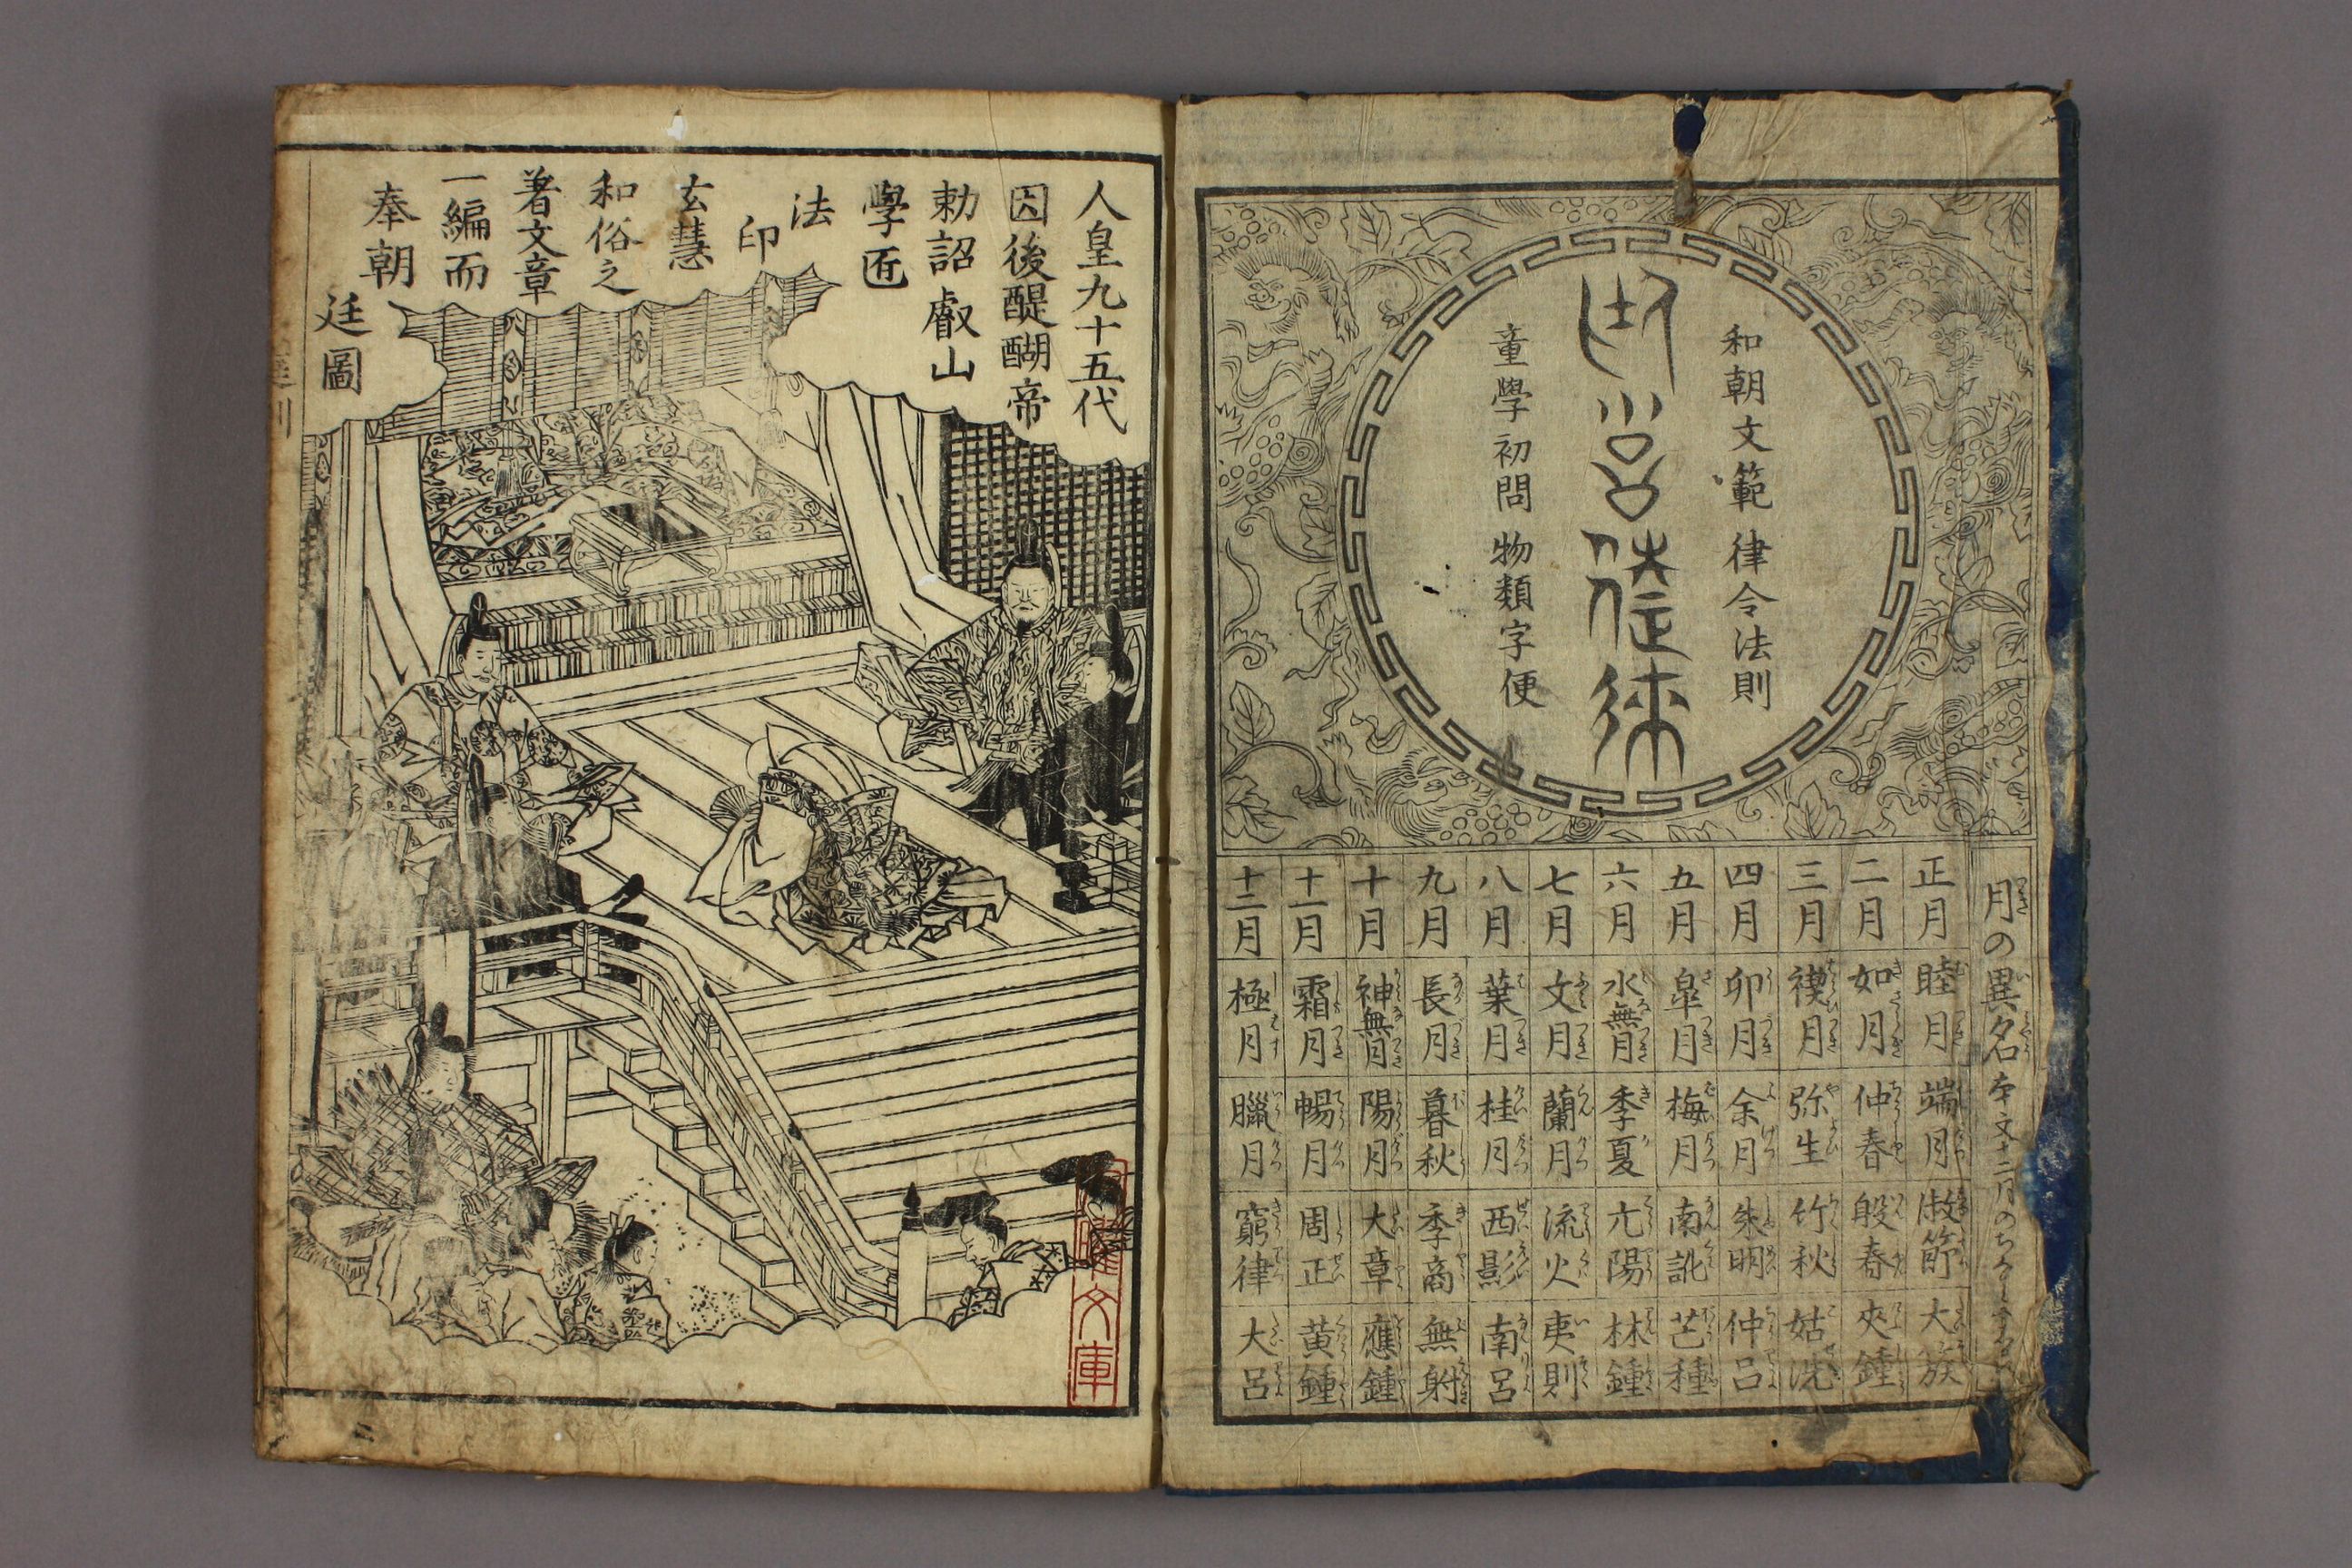 和朝文範 律令法則
童學初問 物類字便
月の異名
正月 睦月 端月 淑節 大簇
二月 如月 仲春 殷春 夾鍾
三月 禊月 弥生 竹秋 姑洗
四月 卯月 余月 朱明 仲呂
五月 皐月 梅月 南訛 芒種
六月 水無月 季夏 亢陽 林鍾
七月 文月 蘭月 流火 夷則
八月 葉月 桂月 西影 南呂
九月 長月 暮秋 季商 無射
十月 神無月 陽月 大章 應鍾
十一月 霜月 暢月 周正 黄鍾
十二月 極月 臘月 窮律 大呂
人皇九十五代
因後醍醐帝
勅詔叡山
學匠
法
印
玄慧
和俗之
著文章
一編而
奉朝
廷圖
二
文庫